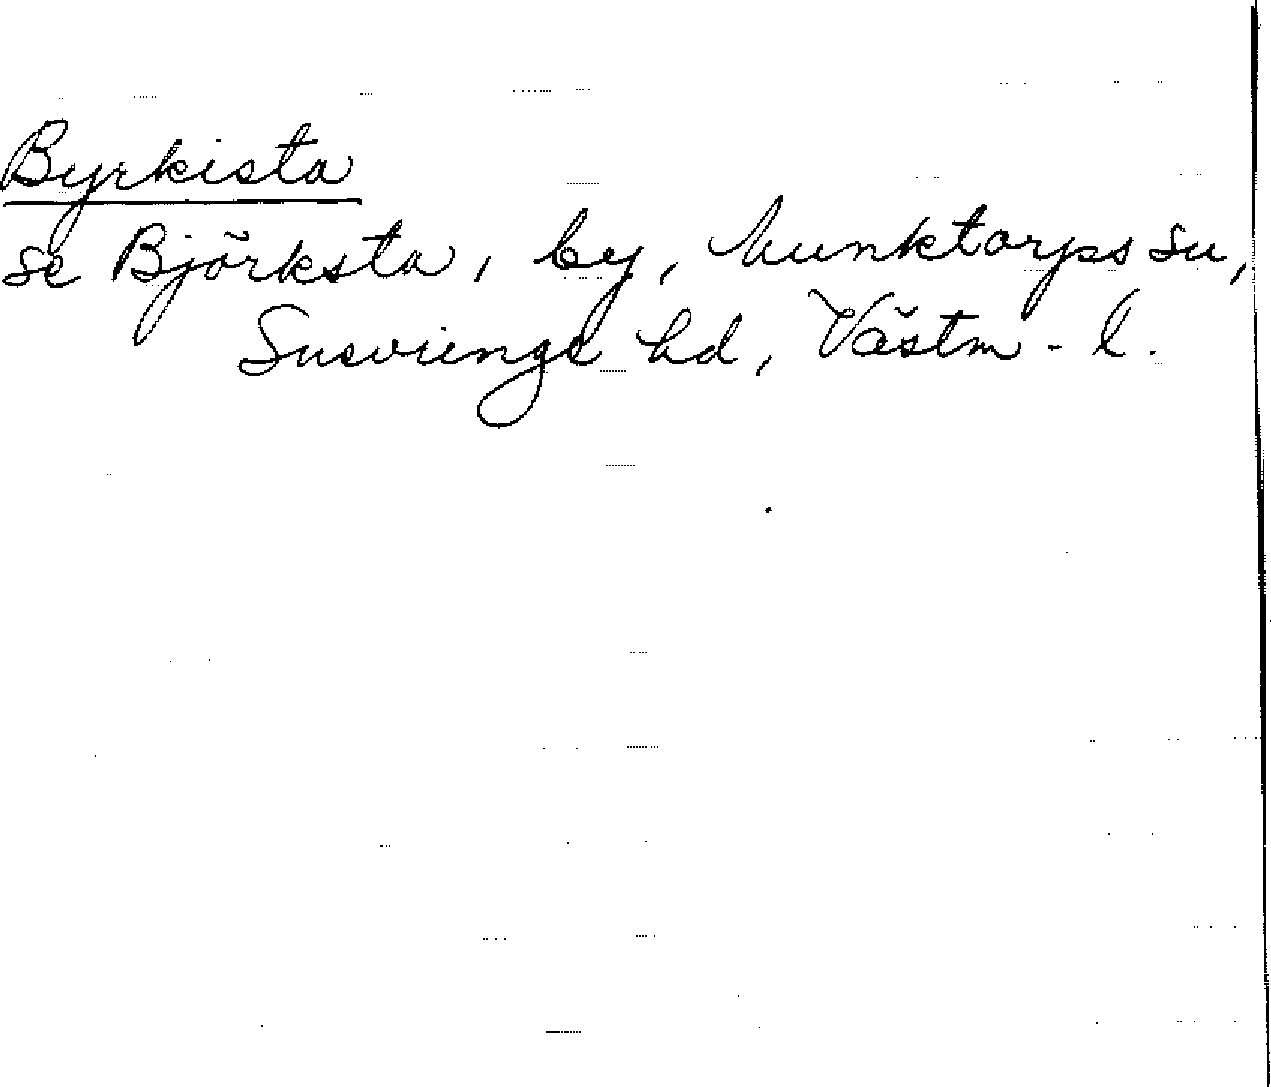 Byrkista
se Björksta, by, Munktorps sn,
Snevringe hd, Västm - l.